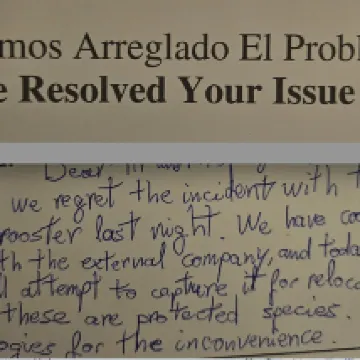 mos Arreglado El Probl
e Resolved Your Issue
Dear
we regret the incident with t
rooster last night. We have co
th the external company, and toda
l attempt to capture it for reloca
these are protected species.
ogies for the inconvenience.